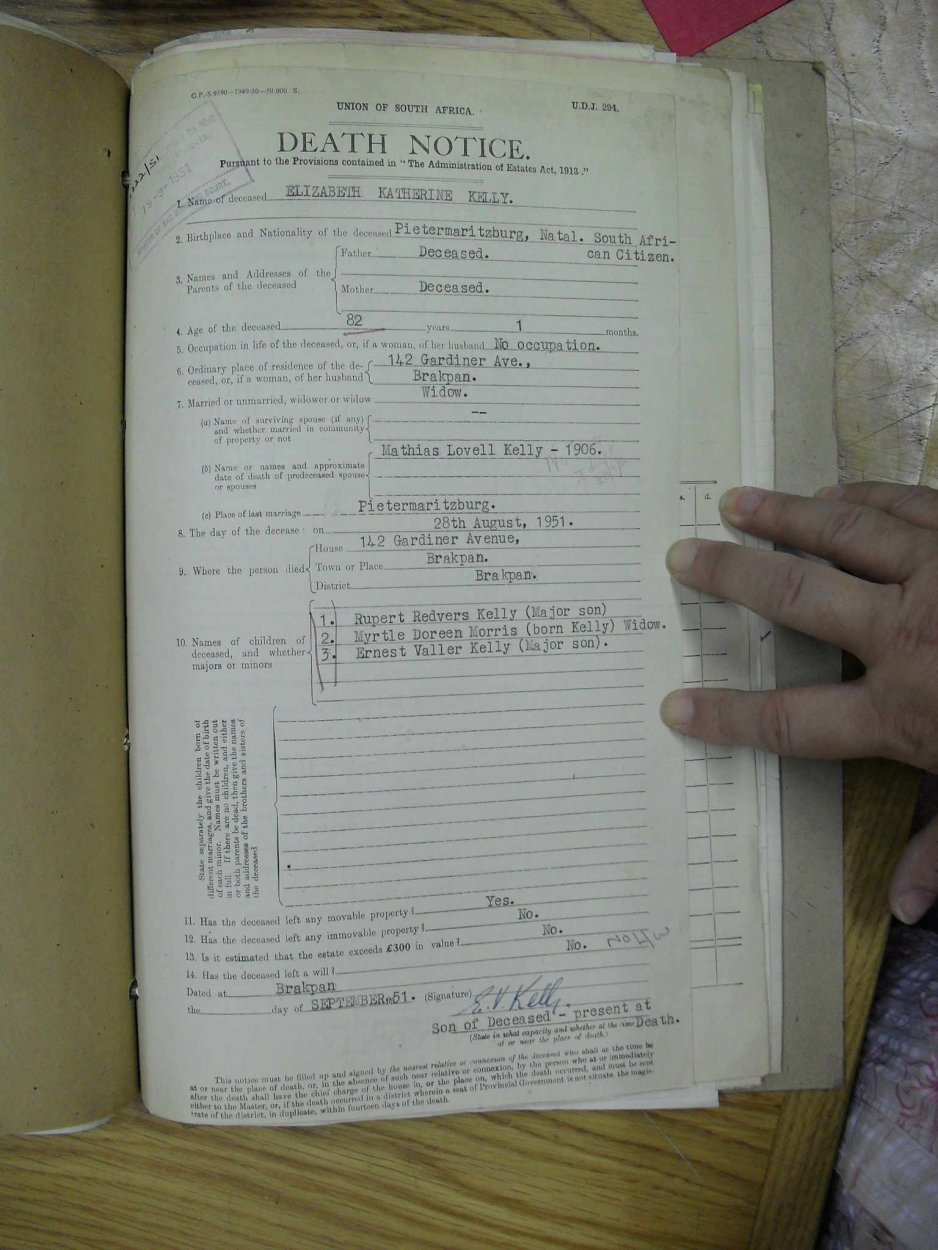 G.P.-S.9190—1949-50—50,000 S.
UNION OF SOUTH AFRICA.
U.D.J. 294.
DEATH NOTICE.
Pursuant to the Provisions contained in "The Administration of Estates Act, 1913."
19-9-1951
1. Name of deceased ELIZABETH KATHERINE KELLY.
2. Birthplace and Nationality of the deceased Pietermaritzburg, Natal. South Afri-
can Citizen.
3. Names and Addresses of the Parents of the deceased
Father Deceased.
Mother Deceased.
4. Age of the deceased 82 years 1 months.
5. Occupation in life of the deceased, or, if a woman, of her husband No occupation.
6. Ordinary place of residence of the de- 142 Gardiner Ave.,
ceased, or, if a woman, of her husband Brakpan.
7. Married or unmarried, widower or widow Widow.
(a) Name of surviving spouse (if any) --
and whether married in community
of property or not
Mathias Lovell Kelly - 1906.
(b) Name or names and approximate
date of death of predeceased spouse
or spouses
(c) Place of last marriage Pietermaritzburg.
8. The day of the decease: on 28th August, 1951.
9. Where the person died
House 142 Gardiner Avenue,
Town or Place Brakpan.
District Brakpan.
10. Names of children of
deceased, and whether
majors or minors
1. Rupert Redvers Kelly (Major son)
2. Myrtle Doreen Morris (born Kelly) Widow.
3. Ernest Valler Kelly (Major son).
State separately the children born of
different marriages, and give the date of birth
of each minor. Names must be written out
in full. If there are no children, and either
or both parents be dead, then give the names
and addresses of the brothers and sisters of
the deceased
11. Has the deceased left any movable property? Yes.
12. Has the deceased left any immovable property? No.
13. Is it estimated that the estate exceeds £300 in value? No.
14. Has the deceased left a will? No.
Dated at Brakpan
the day of SEPTEMBER 51. (Signature) E.V. Kelly.
Son of Deceased - present at
(State in what capacity and whether at the time Death.
at or near the place of death.)
This notice must be filled up and signed by the nearest relative or connexion of the deceased who shall at the time be
at or near the place of death, or, in the absence of such near relative or connexion, by the person who at or immediately
after the death shall have the chief charge of the house in, or the place on, which the death occurred, and must be sent
either to the Master, or, if the death occurred in a district wherein a seat of Provincial Government is not situate, the magis-
trate of the district, in duplicate, within fourteen days of the death.